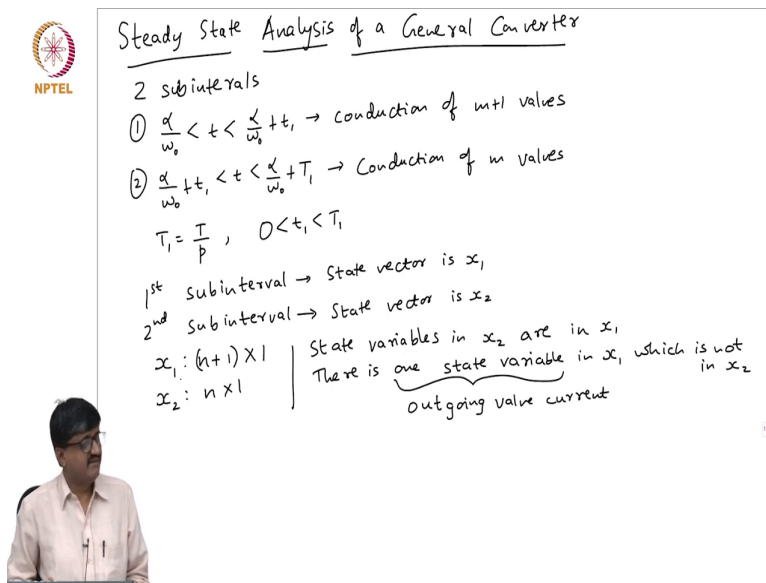 NPTEL
Steady State Analysis of a General Converter
2 subinterals
① α/ω₀ < t < α/ω₀ + t₁ → conduction of m+1 valves
② α/ω₀ + t₁ < t < α/ω₀ + T₁ → Conduction of m valves
T₁ = T/p , 0 < t₁ < T₁
1st subinterval → State vector is x₁
2nd subinterval → State vector is x₂
x₁ : (n+1) × 1
x₂ : n × 1
State variables in x₂ are in x₁
There is one state variable in x₁ which is not
in x₂
outgoing valve current